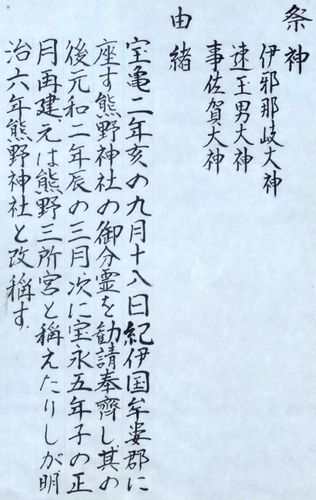 祭神
伊邪那岐大神
速玉男大神
事佐賀大神
由緒
宝亀二年亥の九月十八日紀伊国牟婁郡に
座す熊野神社の御分霊を勧請奉齊し其の
後元和二年辰の三月次に宝永五年子の正
月再建元は熊野三所宮と稱えたりしが明
治六年熊野神社と改稱す